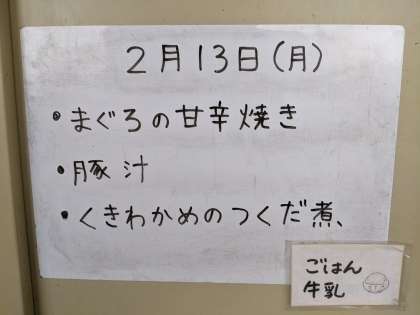 2月13日(月)
・まぐろの甘辛焼き
・豚汁
・くきわかめのつくだ煮、
ごはん
牛乳